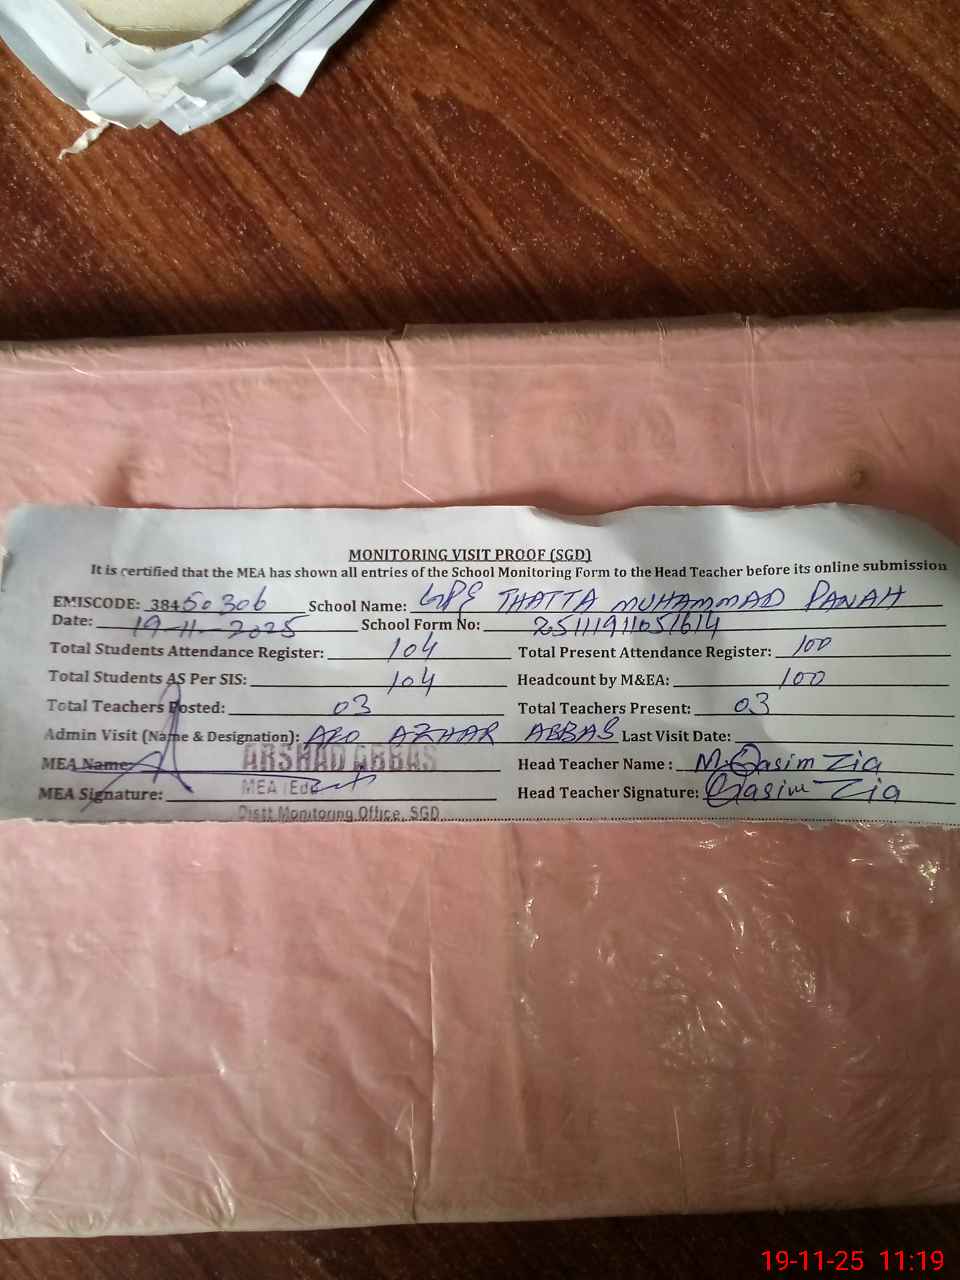 MONITORING VISIT PROOF (SGD)
It is certified that the MEA has shown all entries of the School Monitoring Form to the Head Teacher before its online submission
EMISCODE: 38450306 School Name: GPS THATTA MUHAMMAD PANAH
Date: 19-11-2025 School Form No:
Total Students Attendance Register: 104 Total Present Attendance Register: 100
Total Students AS Per SIS: 104 Headcount by M&EA: 100
Total Teachers Posted: 03 Total Teachers Present: 03
Admin Visit (Name & Designation): AZHAR ABBAS Last Visit Date:
MEA Name: ARSHAD ABBAS Head Teacher Name : M. Qasim Zia
MEA Signature: MEA (Edu) Head Teacher Signature: Qasim Zia
Distt Monitoring Office, SGD
19-11-25 11:19